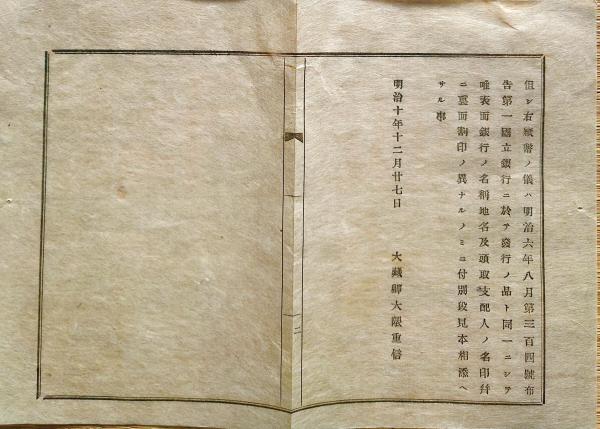 但シ右紙幣ノ儀ハ明治六年八月第三百四號布
告第一國立銀行ニ於テ發行ノ品ト同一ニシテ
唯表面銀行ノ名稱地名及頭取支配人ノ名印幷
ニ裏面割印ノ異ナルノミニ付別段見本相添ヘ
サル事
明治十年十二月廿七日
大藏卿大隈重信
二